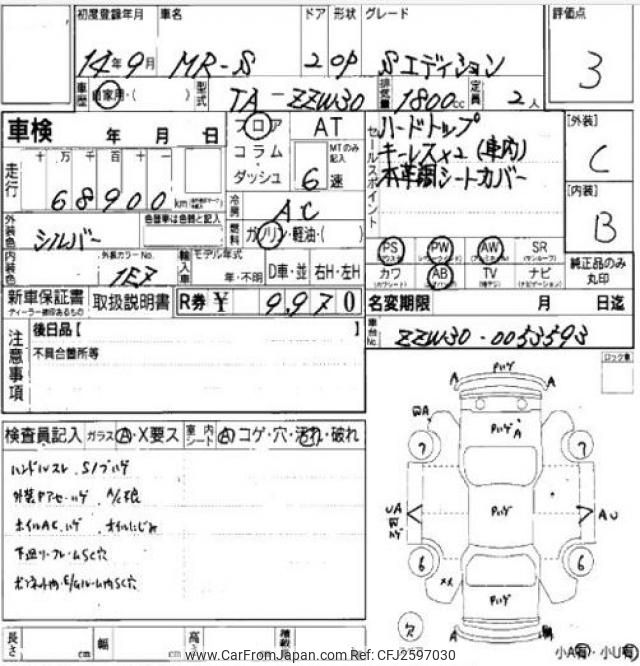 初度登録年月 車名 ドア 形状 グレード 評価点
14年9月 MR-S 2 OP Sエディション 3
車歴 自家用・( ) 型式 TA-ZZW30 排気量 1800cc 定員 2人
車検 年 月 日 フロア AT セールスポイント ハードトップ [外装]
コラム MTのみ記入 キーレス×2 (車内) C
走行 十 万 千 百 十 一 ダッシュ 6速 本革調シートカバー
68900 km 冷房 AC [内装]
外装色 シルバー 色替車は色替と記入 燃料 ガソリン・軽油・( ) B
内装色 外装カラーNo. 1E7 輸入車 モデル年式 年・不明 D車・並 右H・左H
PS PW AW SR 純正品のみ丸印
カワ AB TV ナビ
新車保証書 取扱説明書 R券 ¥ 9,970 名変期限 月 日迄
ディーラー捺印あるもの
注意事項 後日品【 】 車台No. ZZW30-0053593
不具合箇所等
ロック車
検査員記入 ガラス A・X要ス 室内シート A コゲ・穴・汚れ・破れ
ハンドルスレ、S/ブハゲ
外装Pアセ・ハゲ A/C不良
ホイルAC、ハゲ オイルにじみ
下廻リ・フレームSC穴
ボンネット内・E/GルームSC穴
A ハゲ A
ハゲ A
7 7
UA ハゲ AU
6 6
××
ハゲ
欠 A
長さ cm 幅 cm 高さ cm 積載
小A有・小U有
www.CarFromJapan.com Ref: CFJ2597030